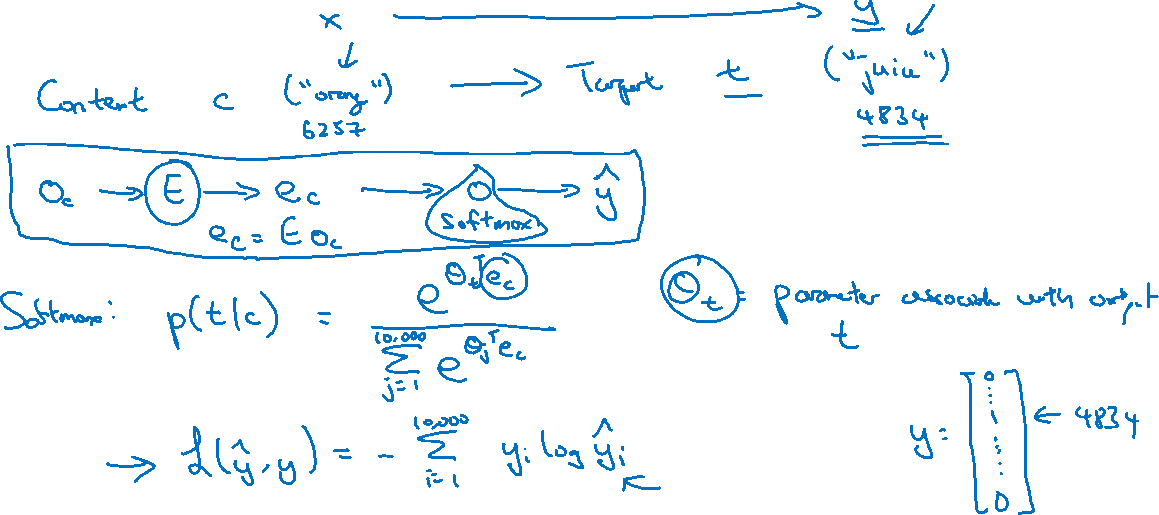 x → y
Context c ("orange") → Target t ("juice")
6257 4834
O_c → E → e_c → O → ŷ
softmax
e_c = E O_c
Softmax: p(t|c) = e^{θ_t^T e_c} / Σ_{j=1}^{10,000} e^{θ_j^T e_c}
θ_t = parameter associated with output t
→ L(ŷ, y) = - Σ_{i=1}^{10,000} y_i log ŷ_i ←
y = [0 ⋮ 1 ⋮ 0] ← 4834